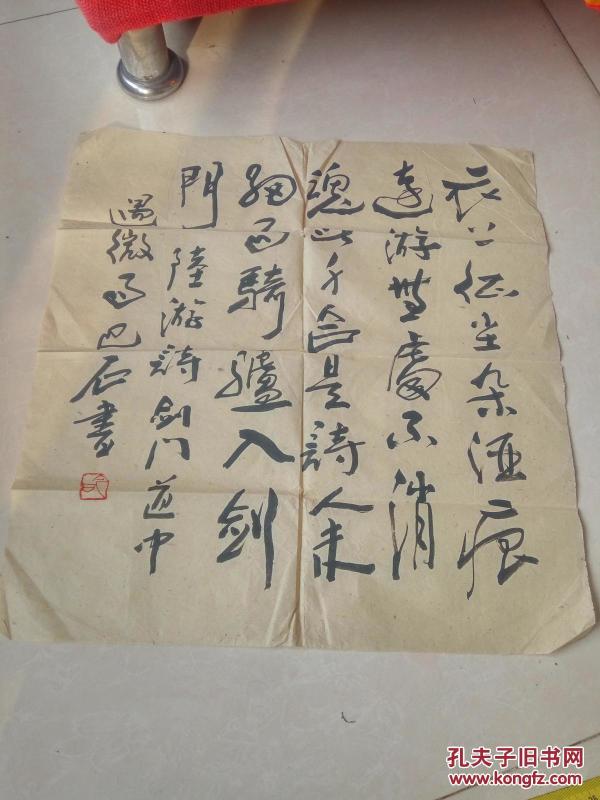 衣上征尘杂酒痕
远游無處不消
魂此身合是詩人未
細雨騎驢入劍
門 陸游詩劍门道中
遇微雨巴石書
孔夫子旧书网
www.kongfz.com